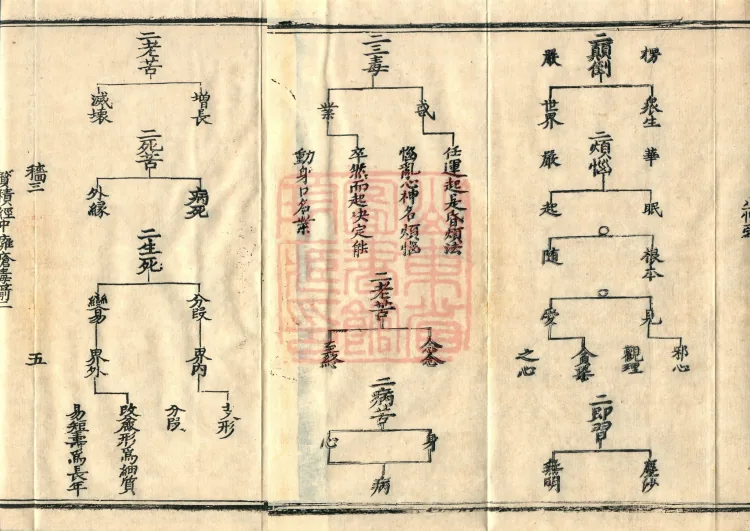 二顛倒
楞 嚴
衆生 華
世界 嚴
二煩惱
眠 起
根本 隨
見 愛
邪心 觀理
貪婬 之心
二即習
塵沙
無明
二三毒
惑
業
任運起是昏煩法
惱亂心神名煩惱
卒然而起決定能
動身口名業
二老苦
念念
二病苦
身
心
病
二老苦
增長
滅壞
二死苦
病死
外緣
二生死
分段
變易
界內
界外
支形
分段
改麁形爲細質
易短壽爲長年
五